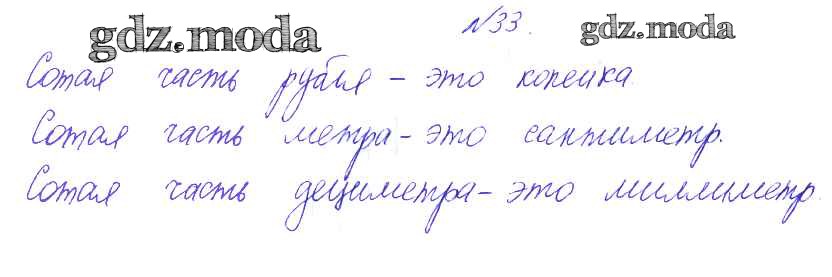 gdz.moda №33. gdz.moda
Сотая часть рубля – это копейка.
Сотая часть метра – это сантиметр.
Сотая часть дециметра – это миллиметр.